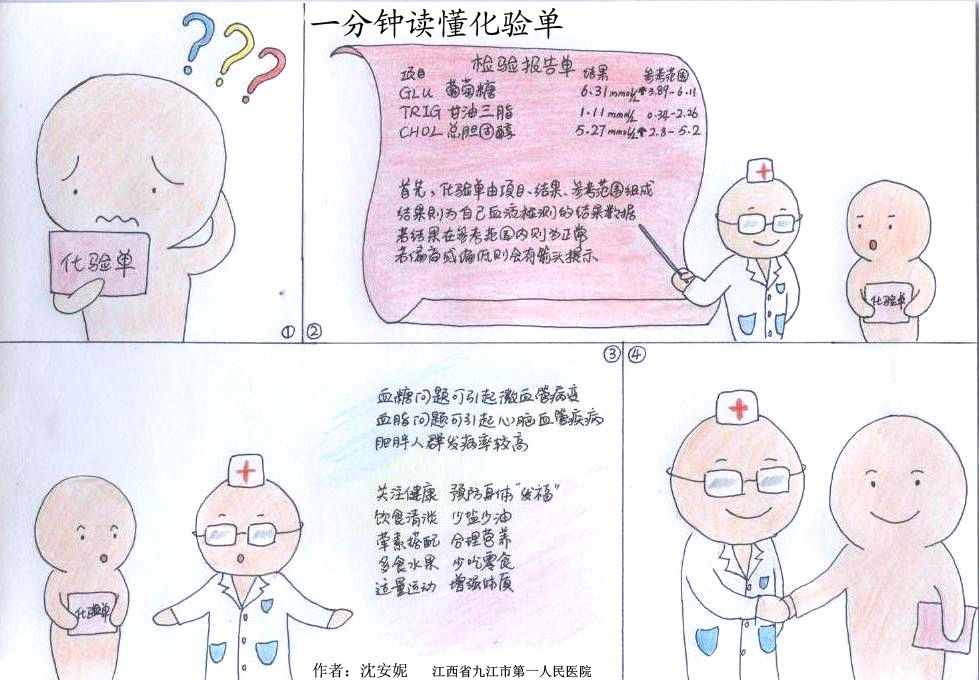 一分钟读懂化验单
化验单
①
②
检验报告单
项目 结果 参考范围
GLU 葡萄糖 6.31mmol/L↑3.89-6.11
TRIG 甘油三脂 1.11mmol/L 0.34-2.26
CHOL 总胆固醇 5.27mmol/L↑2.8-5.2
首先、化验单由项目、结果、参考范围组成
结果则为自己血液检测的结果数据
若结果在参考范围内则为正常
若偏高或偏低则会有箭头提示
化验单
③
血糖问题可引起微血管病变
血脂问题可引起心脑血管疾病
肥胖人群发病率较高
关注健康 预防身体“发福”
饮食清淡 少盐少油
荤素搭配 合理营养
多食水果 少吃零食
适量运动 增强体质
化验单
④
作者：沈安妮 江西省九江市第一人民医院